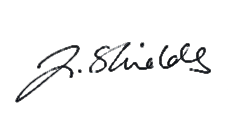 J. Shields